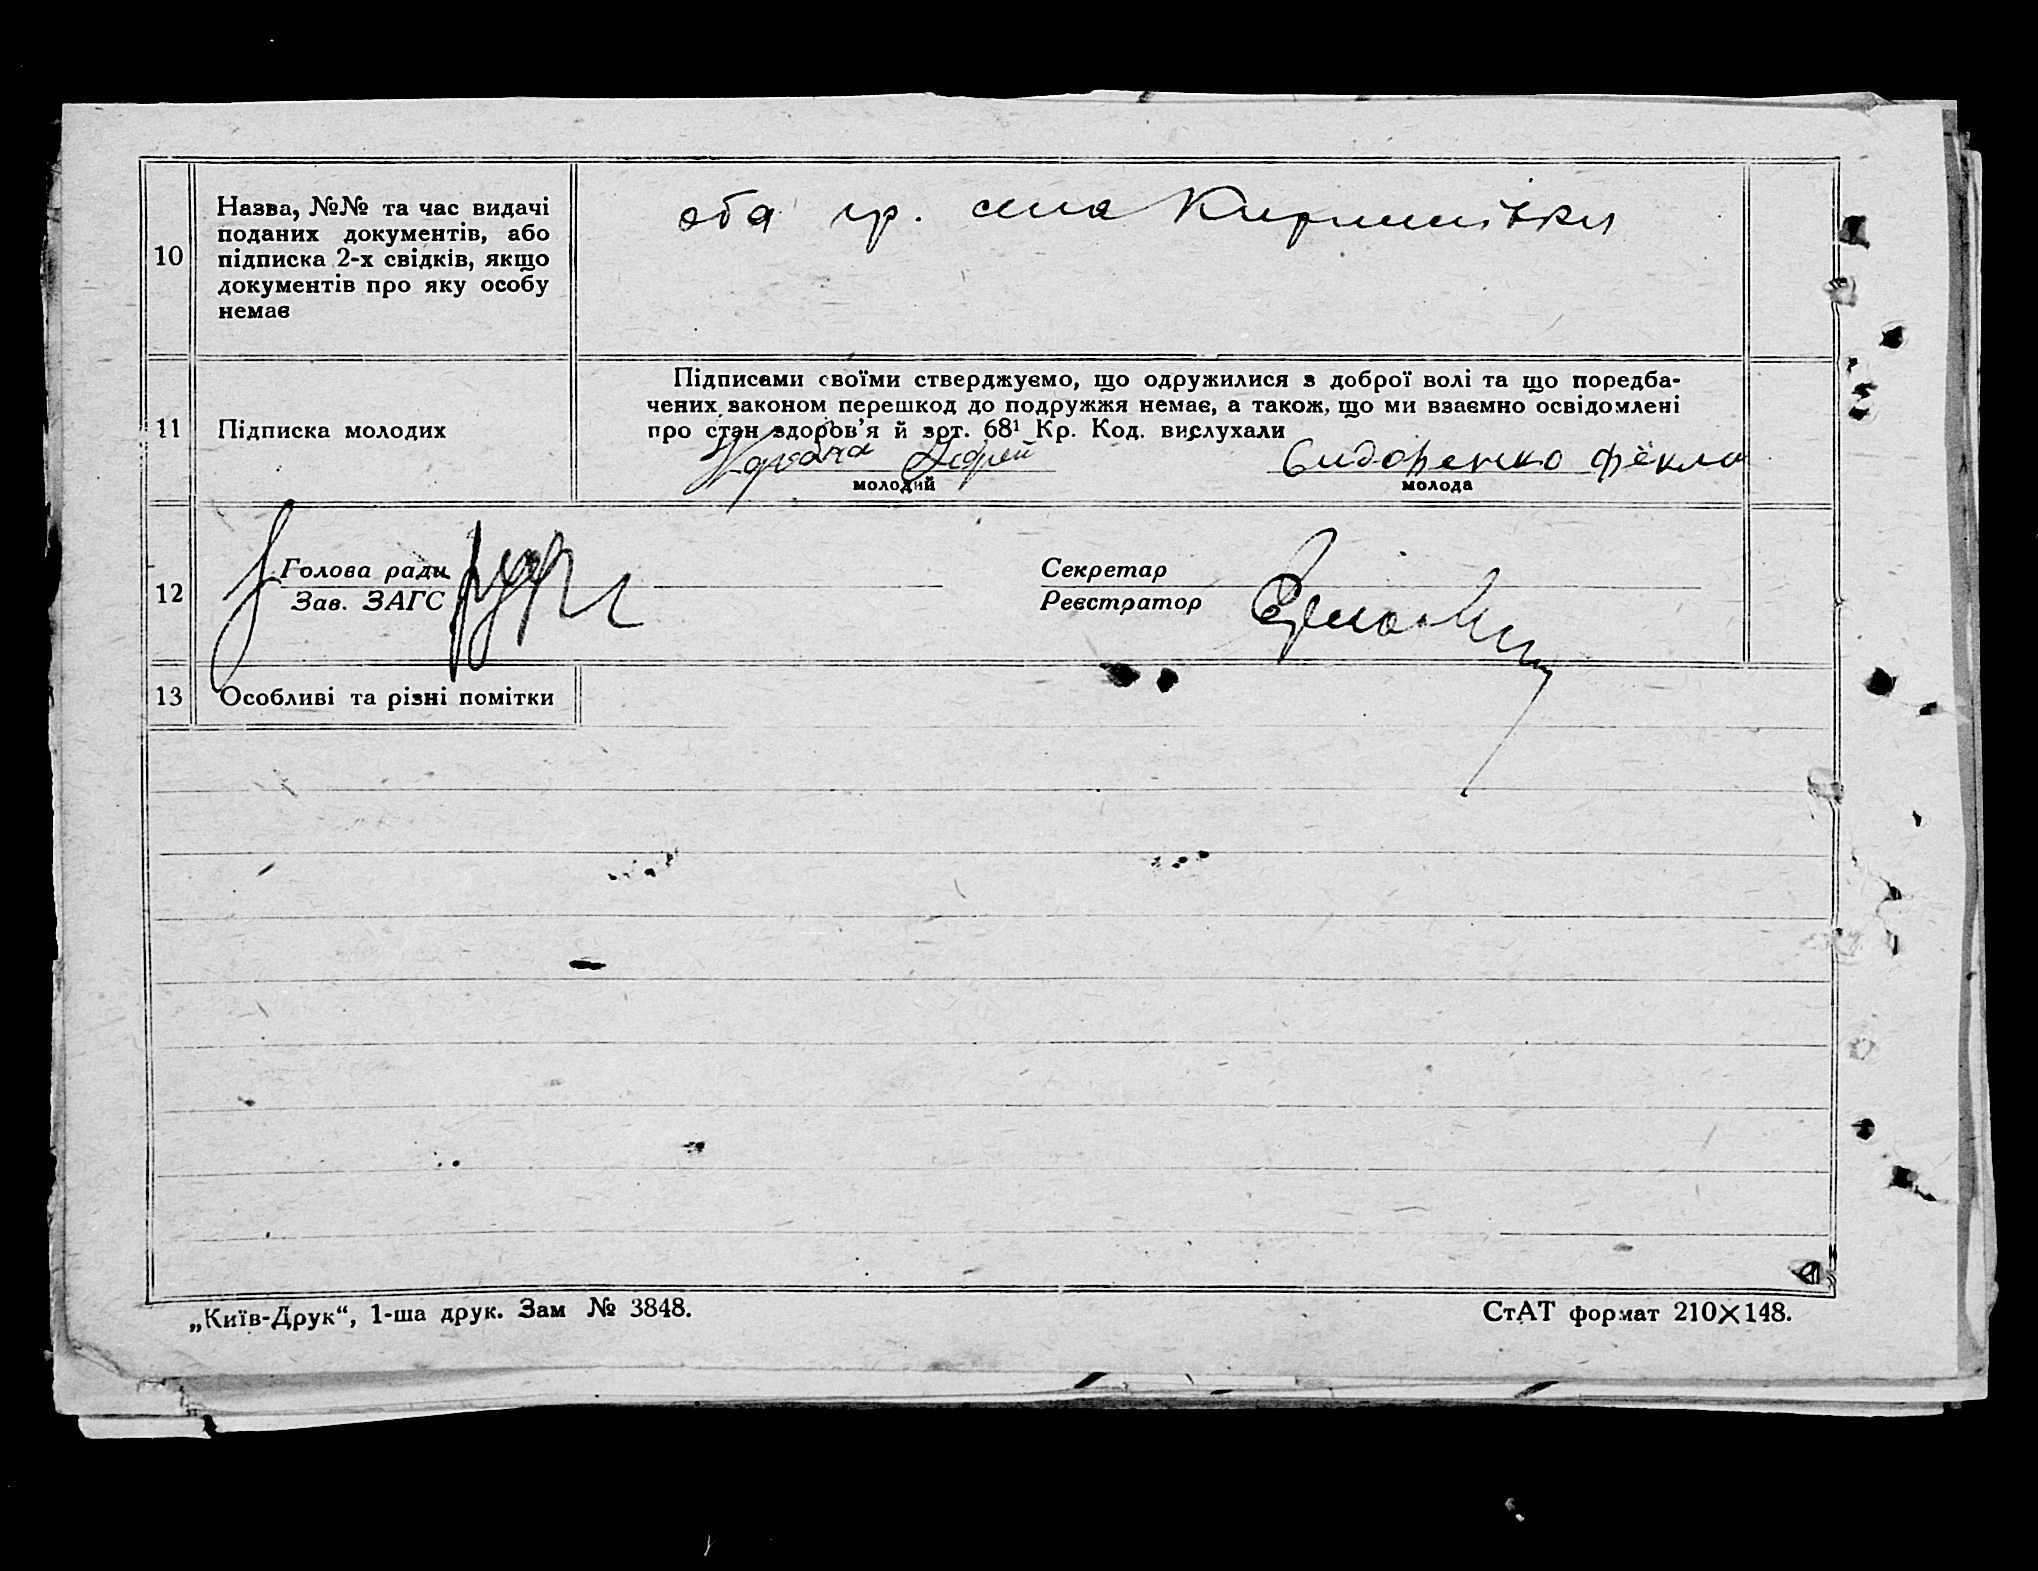 10
Назва, №№ та час видачі
поданих документів, або
підписка 2-х свідків, якщо
документів про яку особу
немає
оба гр. села
11
Підписка молодих
Підписами своїми стверджуємо, що одружилися з доброї волі та що поредба-
чених законом перешкод до подружжя немає, а також, що ми взаємно освідомлені
про стан здоров’я й зрт. 68¹ Кр. Код. вислухали
молодий
Сидоренко Фёкла
молода
12
Голова ради
Зав. ЗАГС
Секретар
Реєстратор
13
Особливі та різні помітки
„Київ-Друк“, 1-ша друк. Зам № 3848.
СтАТ формат 210×148.